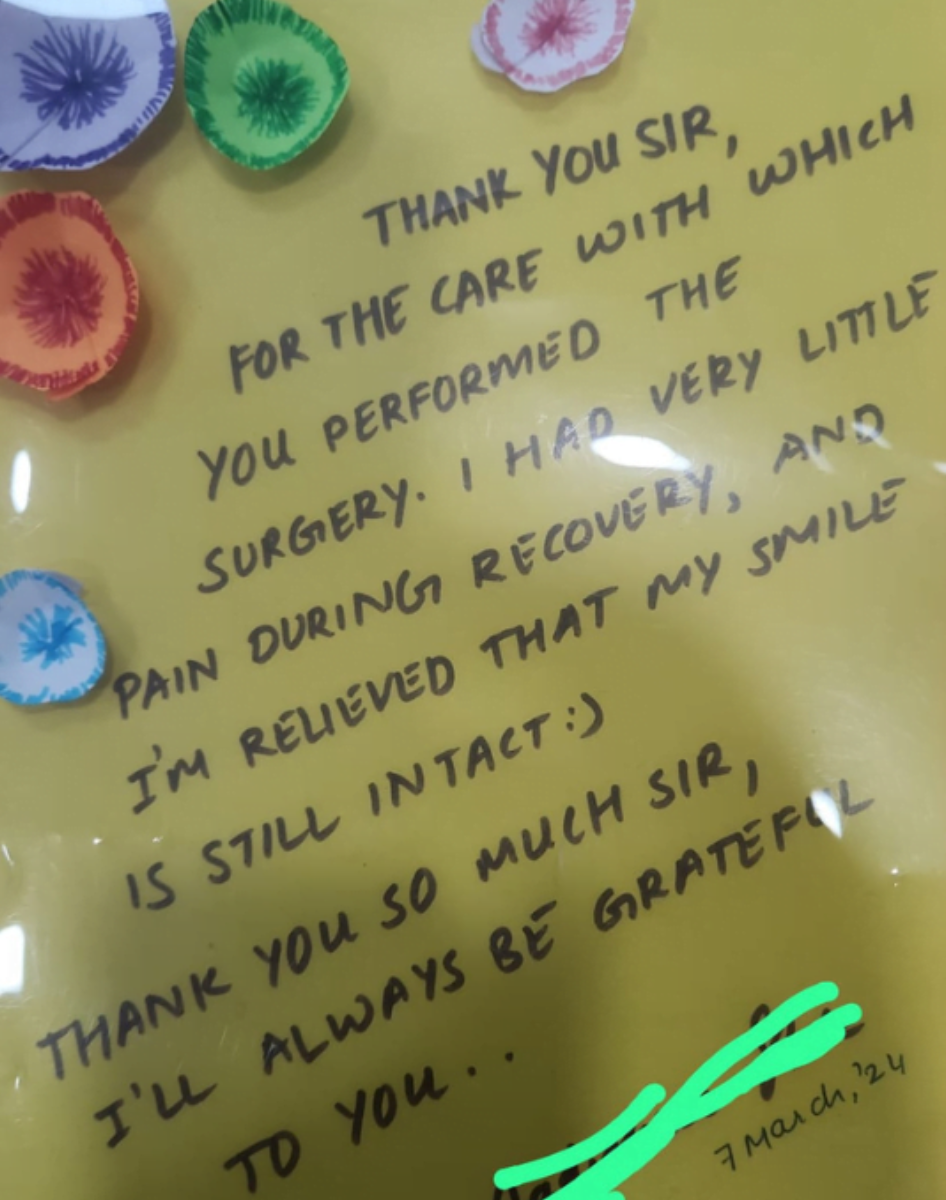 THANK YOU SIR,
FOR THE CARE WITH WHICH
YOU PERFORMED THE
SURGERY. I HAD VERY LITTLE
PAIN DURING RECOVERY, AND
I'M RELIEVED THAT MY SMILE
IS STILL INTACT :)
THANK YOU SO MUCH SIR,
I'LL ALWAYS BE GRATEFUL
TO YOU..
7 March, '24